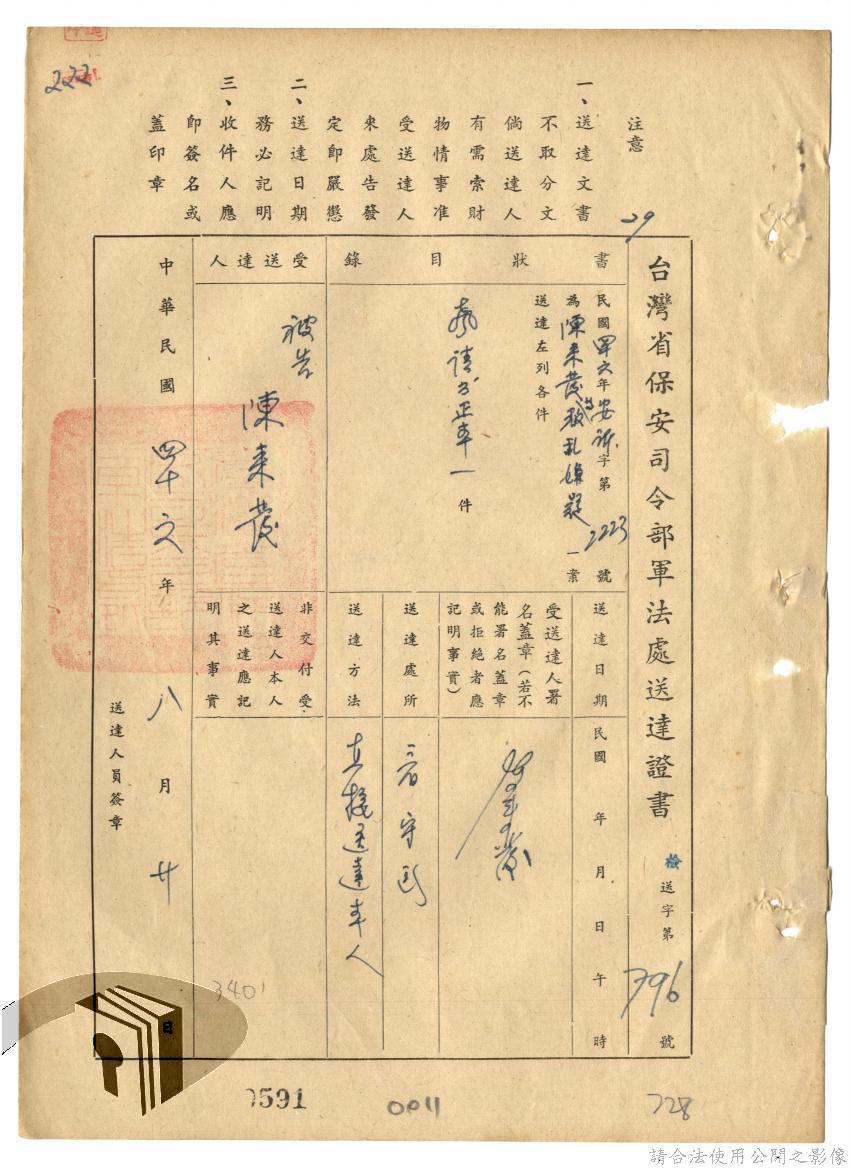 222
注意
一、送達文書
不取分文
倘送達人
有需索財
物情事准
受送達人
來處告發
定即嚴懲
二、送達日期
務必記明
三、收件人應
即簽名或
蓋印章
29
台灣省保安司令部軍法處送達證書
檢送字第796號
書狀目錄
民國四六年安訴字第2223號
為陳來發叛乱嫌疑一案
送達左列各件
起請書正本一件
受送達人
被告
陳來發
送達日期
民國 年 月 日 午 時
受送達人署
名蓋章（若不
能署名蓋章
或拒絕者應
記明事實）
陳來發
送達處所
看守所
送達方法
直接送達本人
非交付受
送達人本人
之送達應記
明其事實
中華民國四十六年八月廿
送達人員簽章
3401
0591
0011
728
請合法使用公開之影像